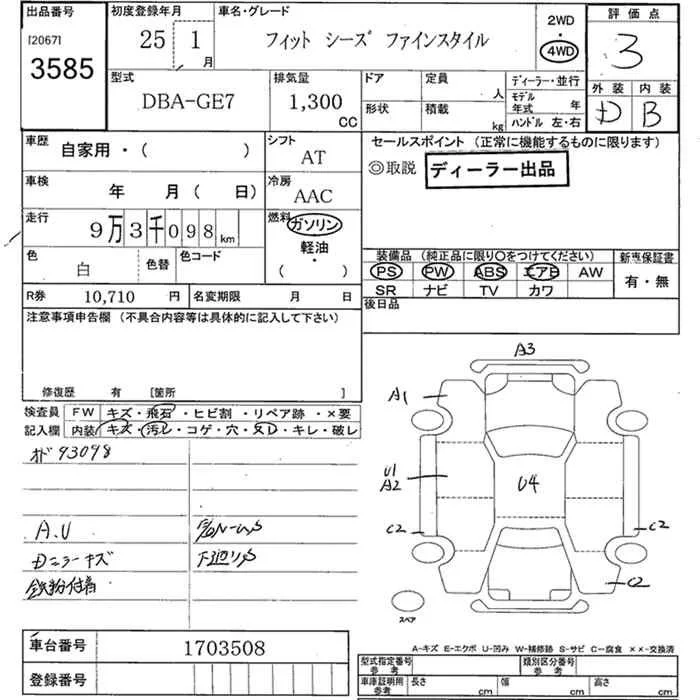 出品番号 [2067] 3585
初度登録年月 25 1 月
車名・グレード フィット シーズ ファインスタイル
2WD ・ 4WD
評価点 3
外装 D 内装 B
型式 DBA-GE7
排気量 1,300 CC
ドア 形状
定員 人 積載 kg
ディーラー・並行
モデル年式 年
ハンドル 左・右
車歴 自家用・( )
シフト AT
セールスポイント (正常に機能するものに限ります)
◎取説 ディーラー出品
車検 年 月( 日)
冷房 AAC
走行 9万3千098km
燃料 ガソリン 軽油 ・ ( )
色 白 色替 色コード
装備品 (純正品に限り○をつけてください) 新車保証書
PS PW ABS エアB AW 有・無
SR ナビ TV カワ
R券 10,710 円 名変期限 月 日
後日品
注意事項申告欄 (不具合内容等は具体的に記入して下さい)
修復歴 有 [箇所 ]
検査員 FW キズ・飛石・ヒビ割・リペア跡・×要
記入欄 内装 キズ・汚レ・コゲ・穴・ヌレ・キレ・破レ
オド93098
A.U
下廻りS
鉄粉付着
A3
A1
U1
A2
U4
C2
C2
C2
スペア
車台番号 1703508
登録番号
A-キズ E-エクボ U-凹み W-補修跡 S-サビ C-腐食 ××-交換済
型式指定番号 参考 類別区分番号 参考
車庫証明用 参考 長さ cm 幅 cm 高さ cm